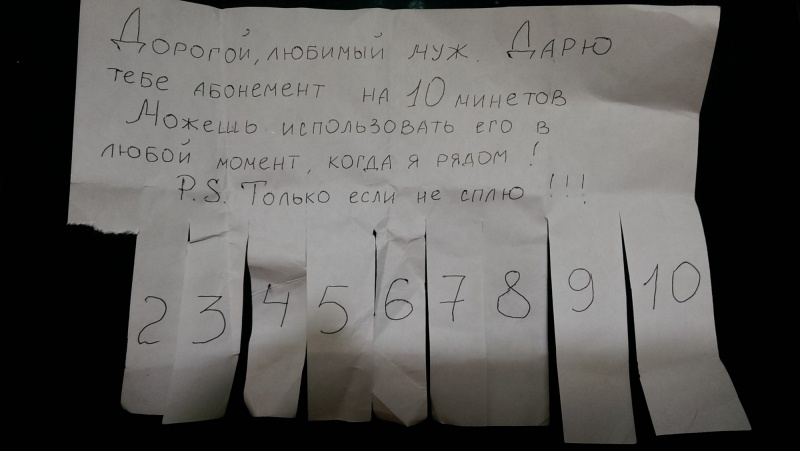 Дорогой, любимый муж. Дарю
тебе абонемент на 10 минетов
Можешь использовать его в
любой момент, когда я рядом!
P.S. Только если не сплю !!!
2 3 4 5 6 7 8 9 10